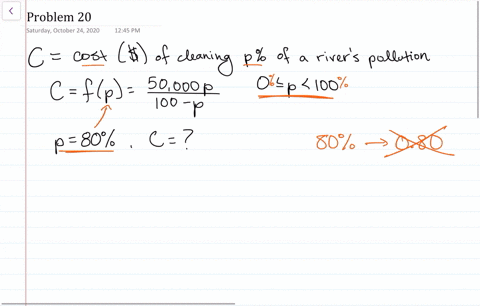 Problem 20
Saturday, October 24, 2020 12:45 PM
C = cost ($) of cleaning p% of a river's pollution
C = f(p) = 50,000p / 100-p 0% ≤ p < 100%
p = 80% . C = ? 80% → 0.80